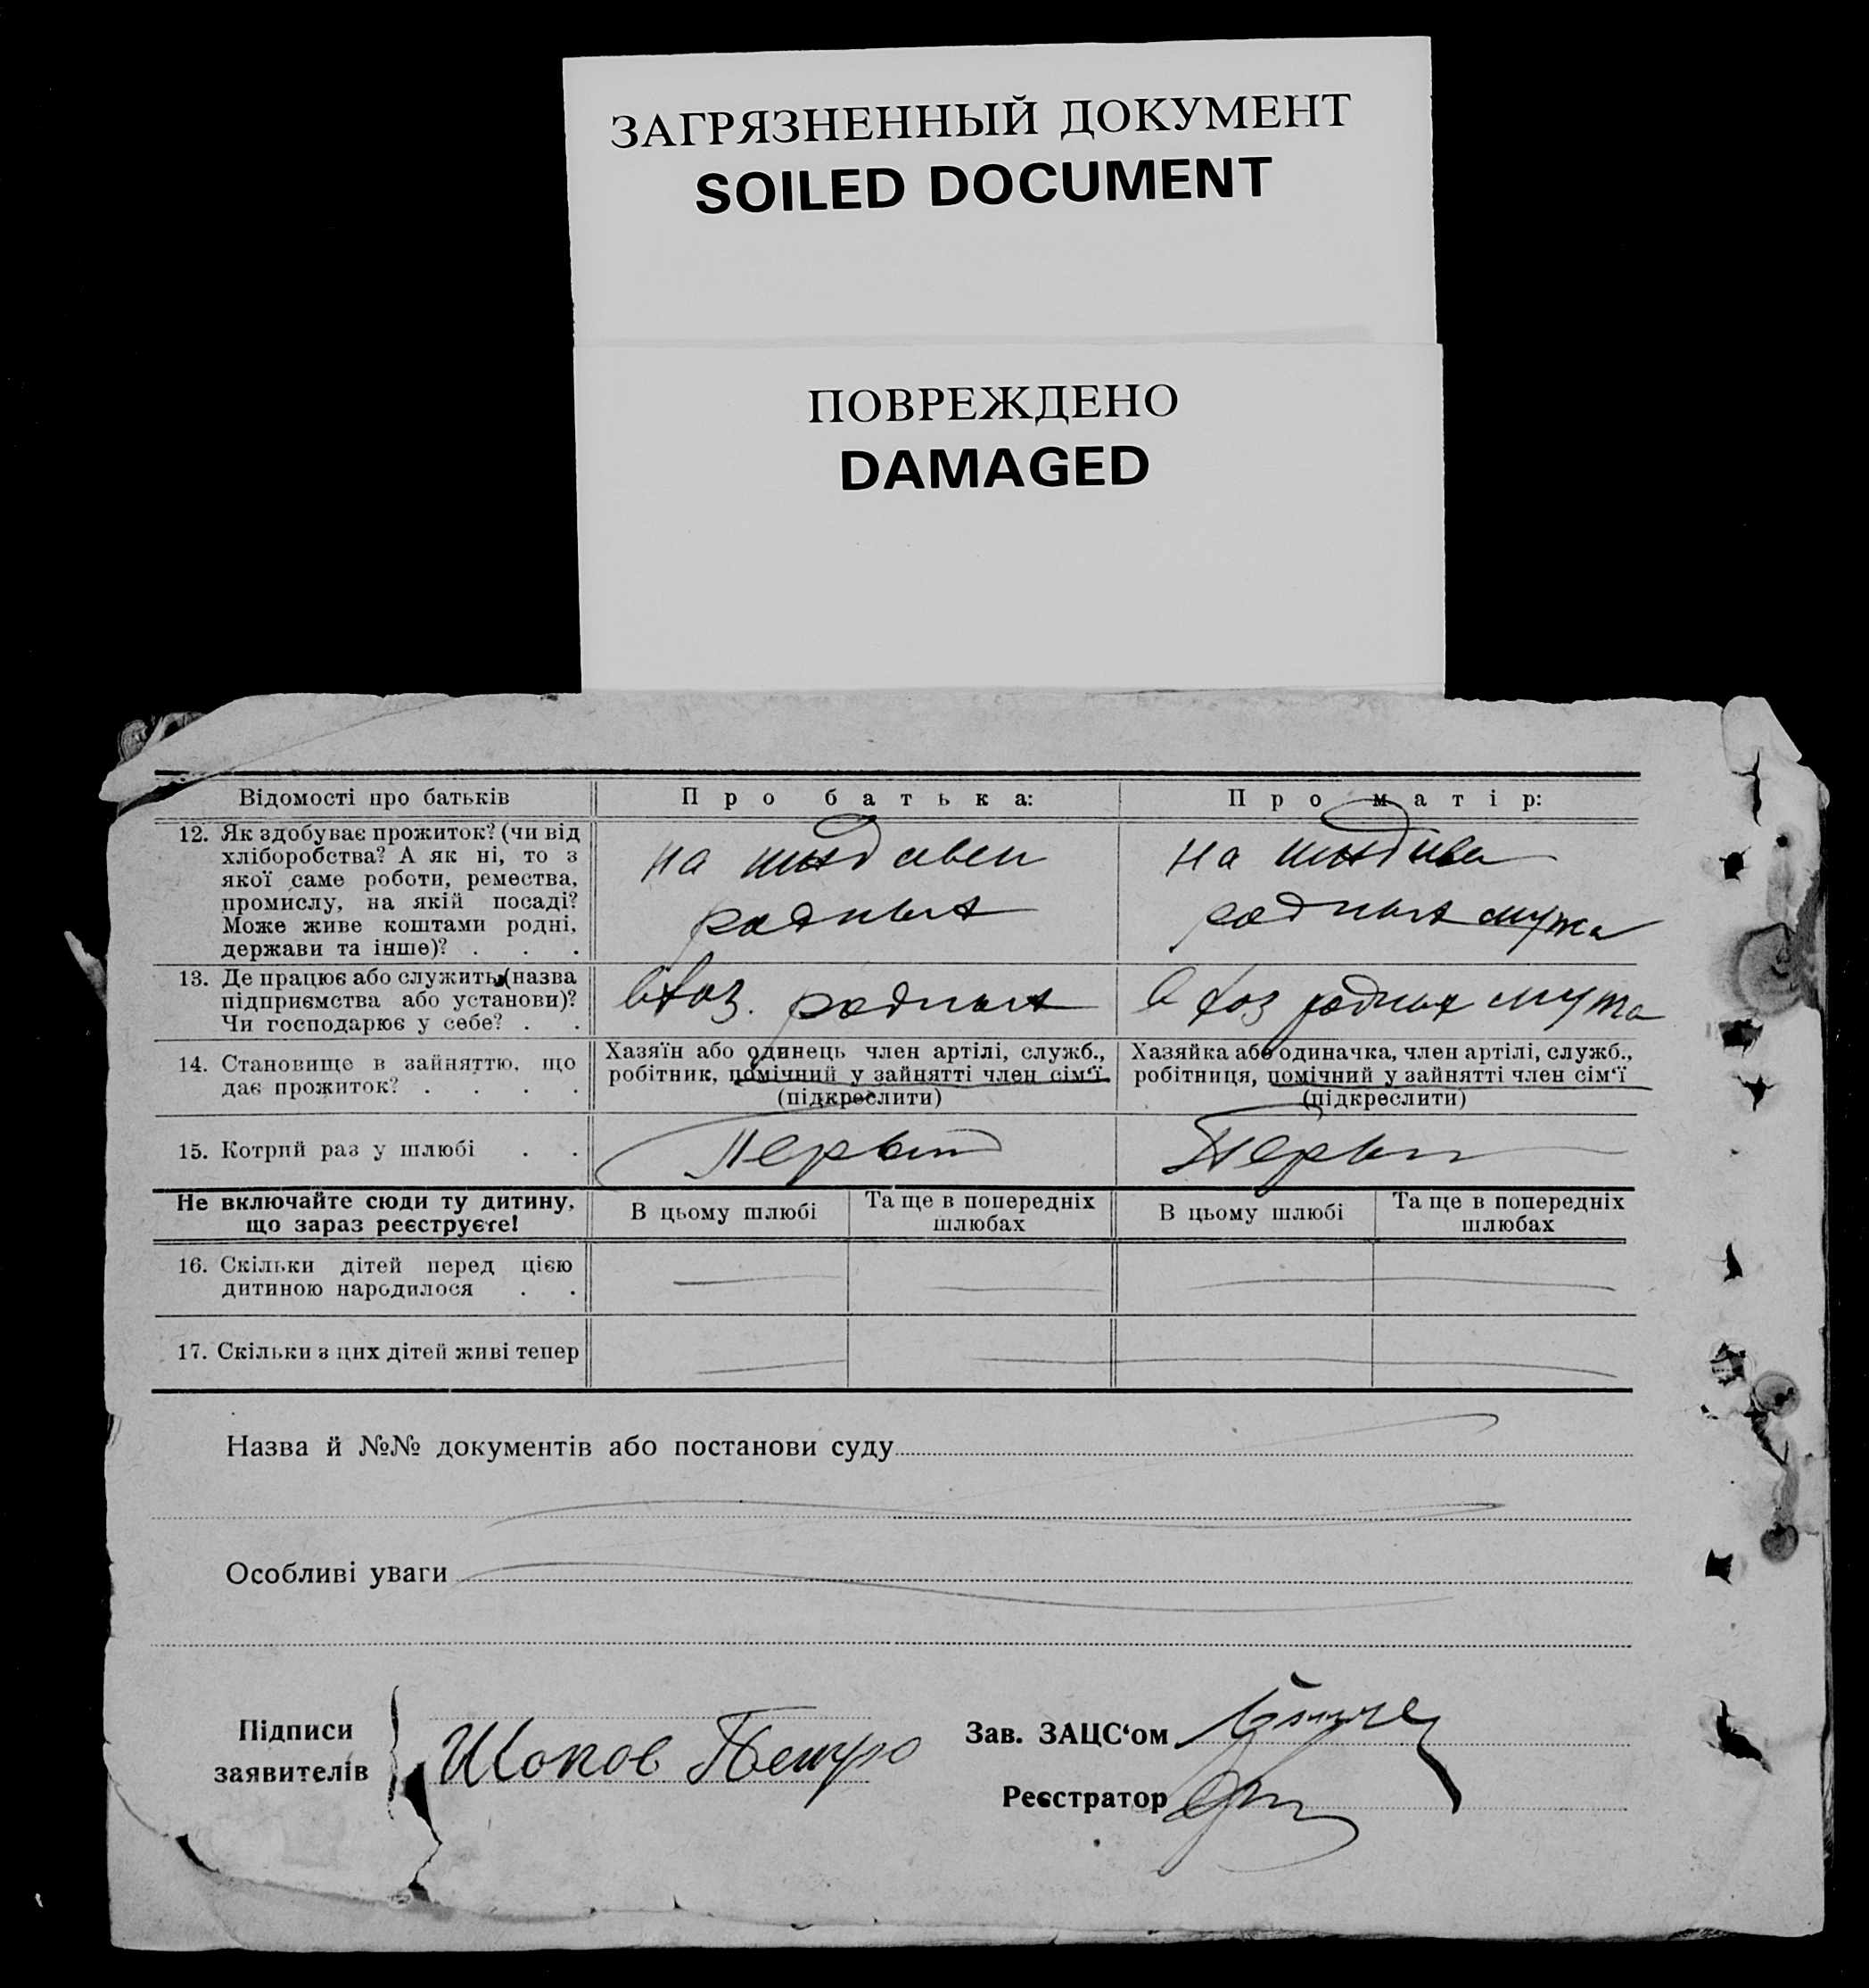 ЗАГРЯЗНЕННЫЙ ДОКУМЕНТ
SOILED DOCUMENT
ПОВРЕЖДЕНО
DAMAGED
Відомості про батьків
Про батька:
Про матір:
12. Як здобуває прожиток? (чи від
хліборобства? А як ні, то з
якої саме роботи, ремества,
промислу, на якій посаді?
Може живе коштами родні,
держави та інше)? . . .
на
родных
на
родных мужа
13. Де працює або служить (назва
підприємства або установи)?
Чи господарює у себе? . .
в хоз. родных
в хоз родных мужа
14. Становище в зайняттю, що
дає прожиток? . . . .
Хазяїн або одинець член артілі, служб.,
робітник, помічний у зайнятті член сім‘ї
(підкреслити)
Хазяйка або одиначка, член артілі, служб.,
робітниця, помічний у зайнятті член сім‘ї
(підкреслити)
15. Котрий раз у шлюбі . .
Первый
Первый
Не включайте сюди ту дитину,
що зараз реєструєте!
В цьому шлюбі
Та ще в попередніх
шлюбах
В цьому шлюбі
Та ще в попередніх
шлюбах
16. Скільки дітей перед цією
дитиною народилося . .
17. Скільки з цих дітей живі тепер
Назва й №№ документів або постанови суду
Особливі уваги
Підписи
заявителів
Шопов Петро
Зав. ЗАЦС‘ом
Реєстратор